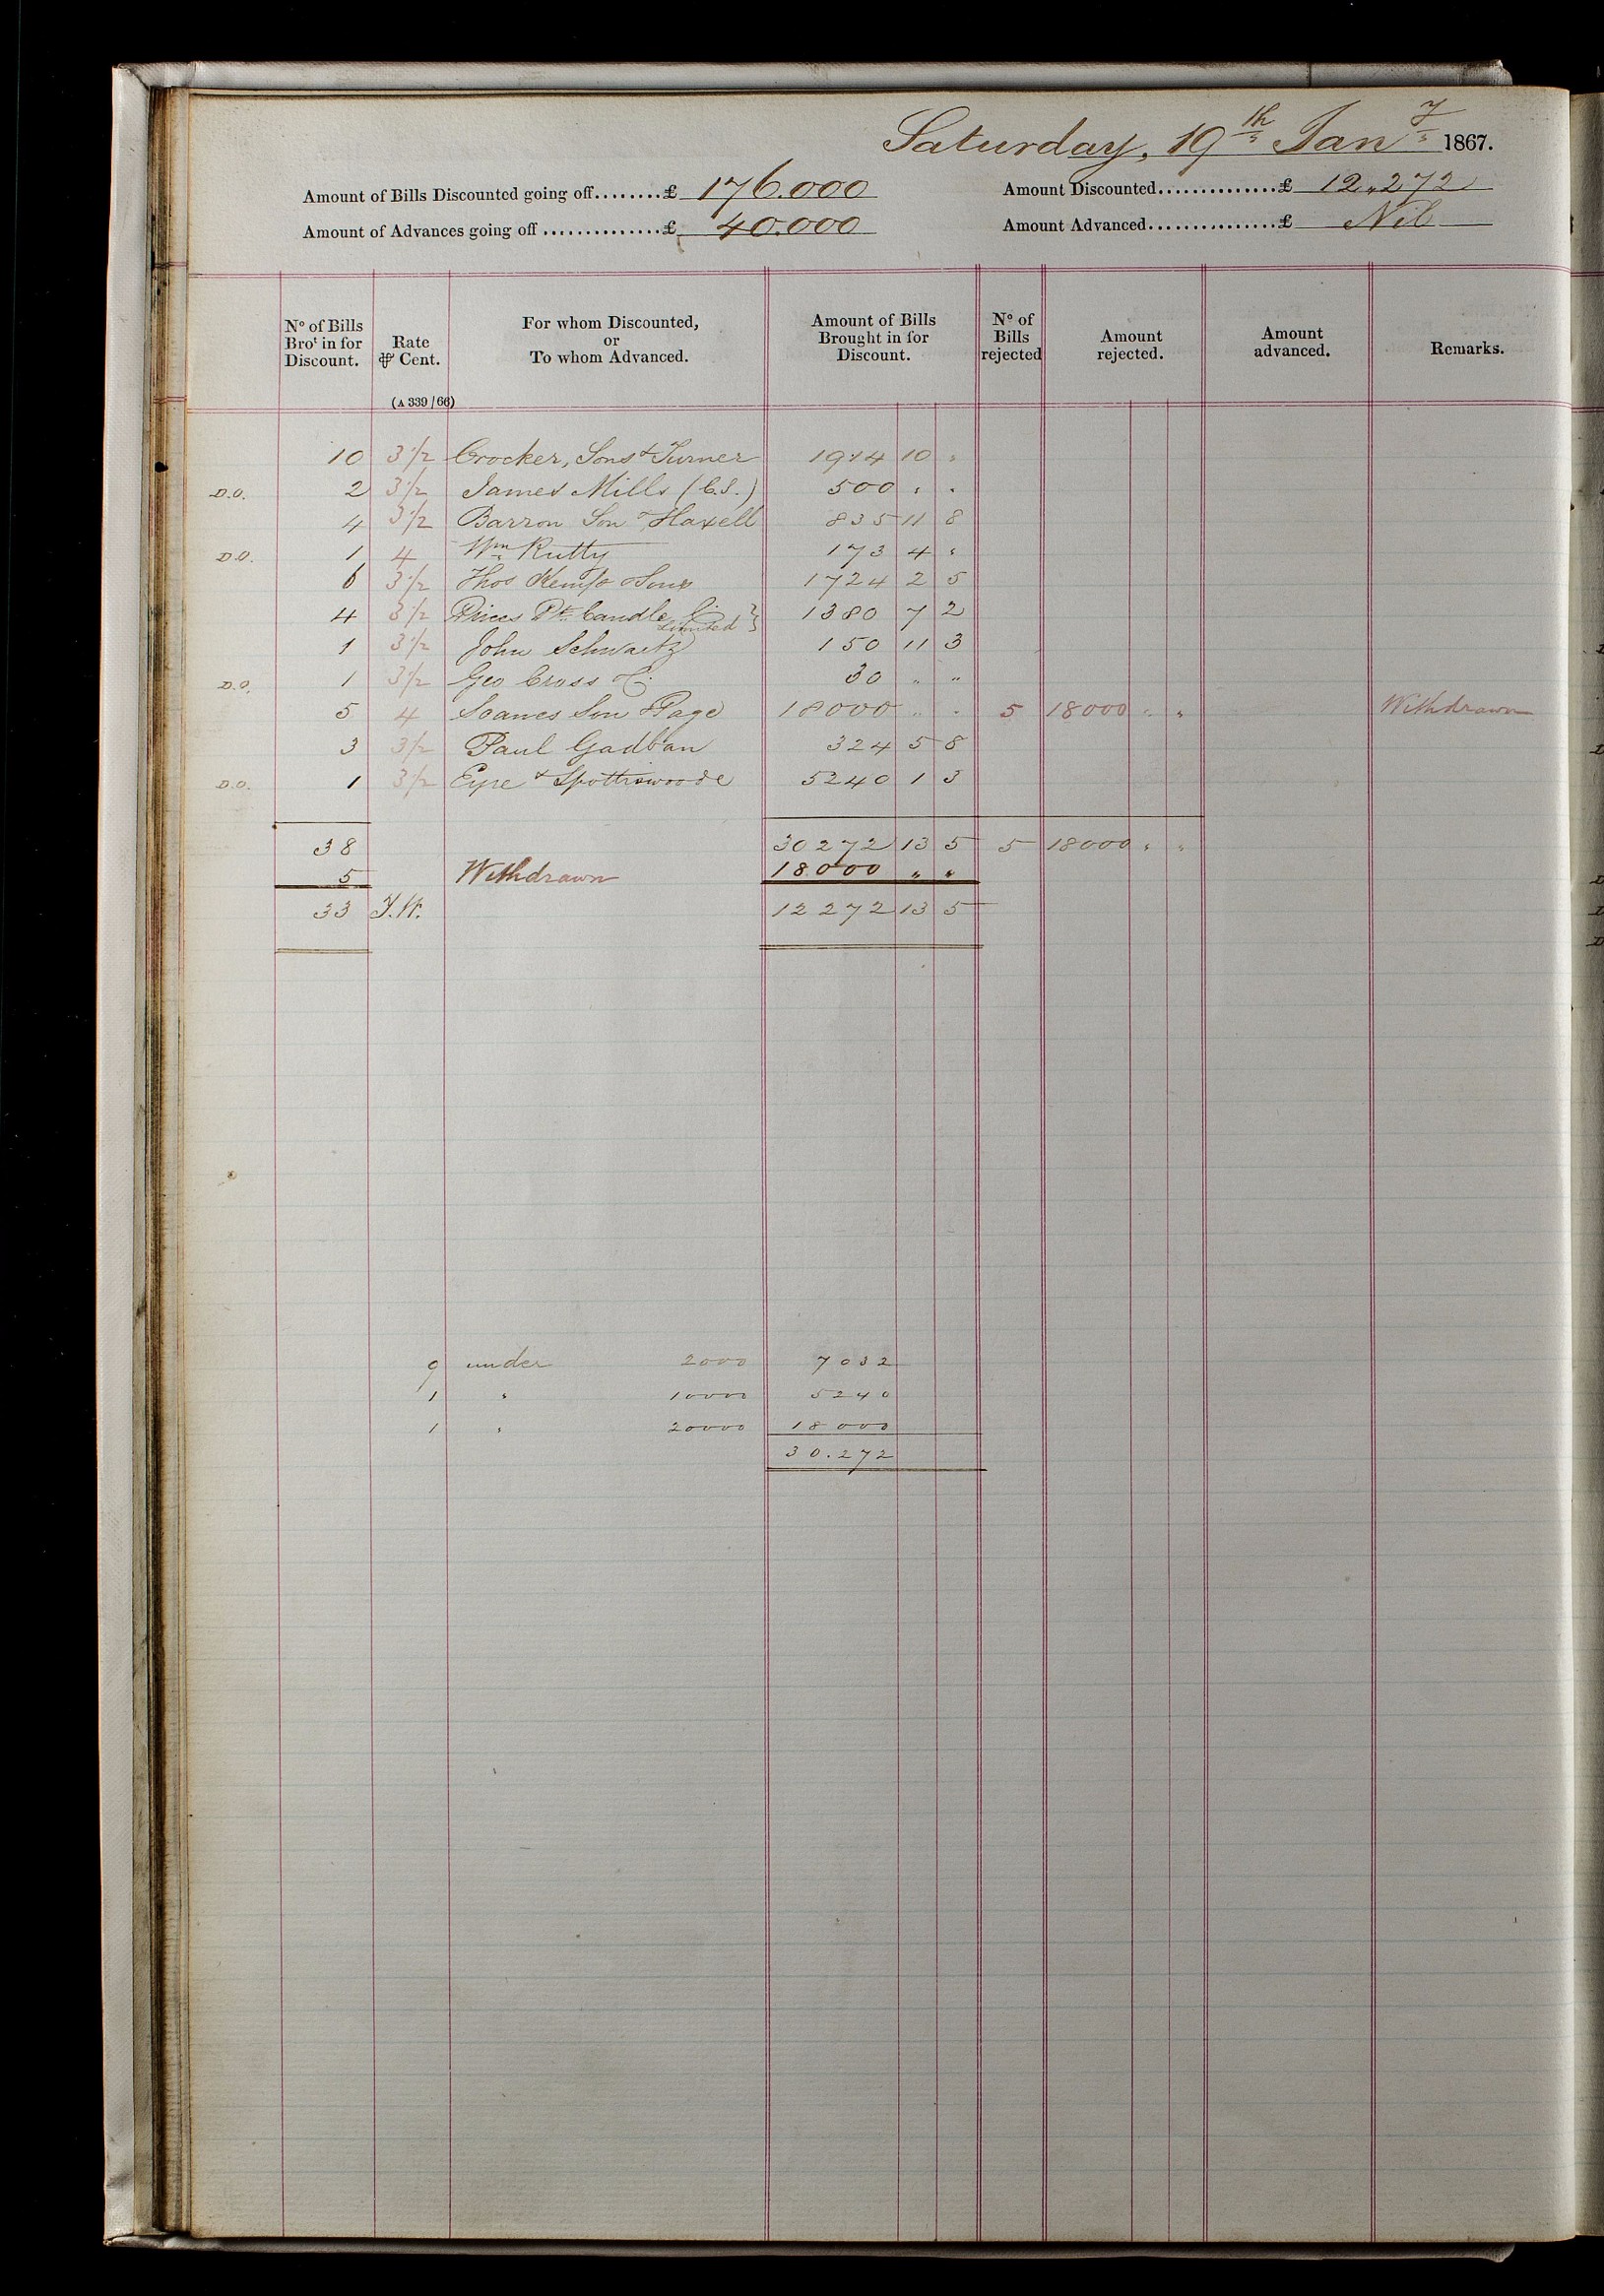 Saturday, 19th Jany 1867.
Amount of Bills Discounted going off........£ 176.000 Amount Discounted..............£ 12,272
Amount of Advances going off ..............£ 40.000 Amount Advanced...............£ Nil
No of Bills Brot in for Discount. Rate ⅌ Cent. For whom Discounted, or To whom Advanced. Amount of Bills Brought in for Discount. No of Bills rejected Amount rejected. Amount advanced. Remarks.
(A 339/66)
10 3½ Crocker, Sons & Turner 1914 10 "
D.O. 2 3½ James Mills (C.S.) 500 " "
4 3½ Barron Son & Haxell 835 11 8
D.O. 1 4 Wm Rutty 173 4 "
6 3½ Thos Kemp & Sons 1724 2 5
4 3½ Prices Pt. Candle Co. Limited } 1380 7 2
1 3½ John Schwartz 150 11 3
D.O. 1 3½ Geo Cross & Co. 30 " "
5 4 Soames Son & Page 18000 " " 5 18000 " " Withdrawn
3 3½ Paul Gadban 324 5 8
D.O. 1 3½ Eyre & Spottiswoode 5240 1 3
38 30272 13 5 5 18000 " "
5 Withdrawn 18000 " "
33 12272 13 5
9 under 2000 7032
1 " 10000 5240
1 " 20000 18000
30.272